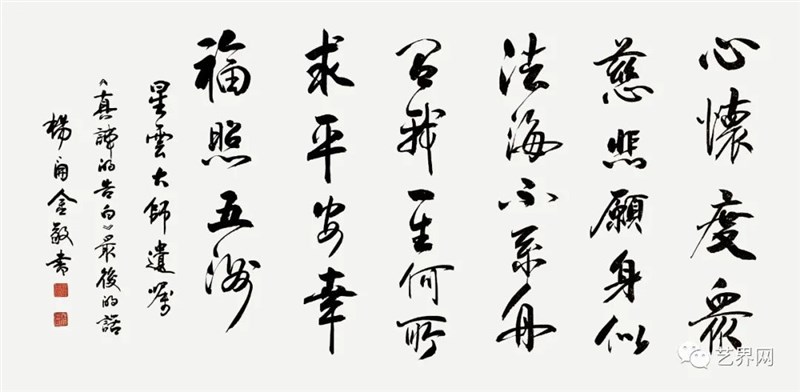 心懷度眾
慈悲願身似
法海不系舟
問我一生何所
求平安幸
福照五洲
星雲大師遺囑
《真誠的告白》最後的話
楊金敬書
艺界网